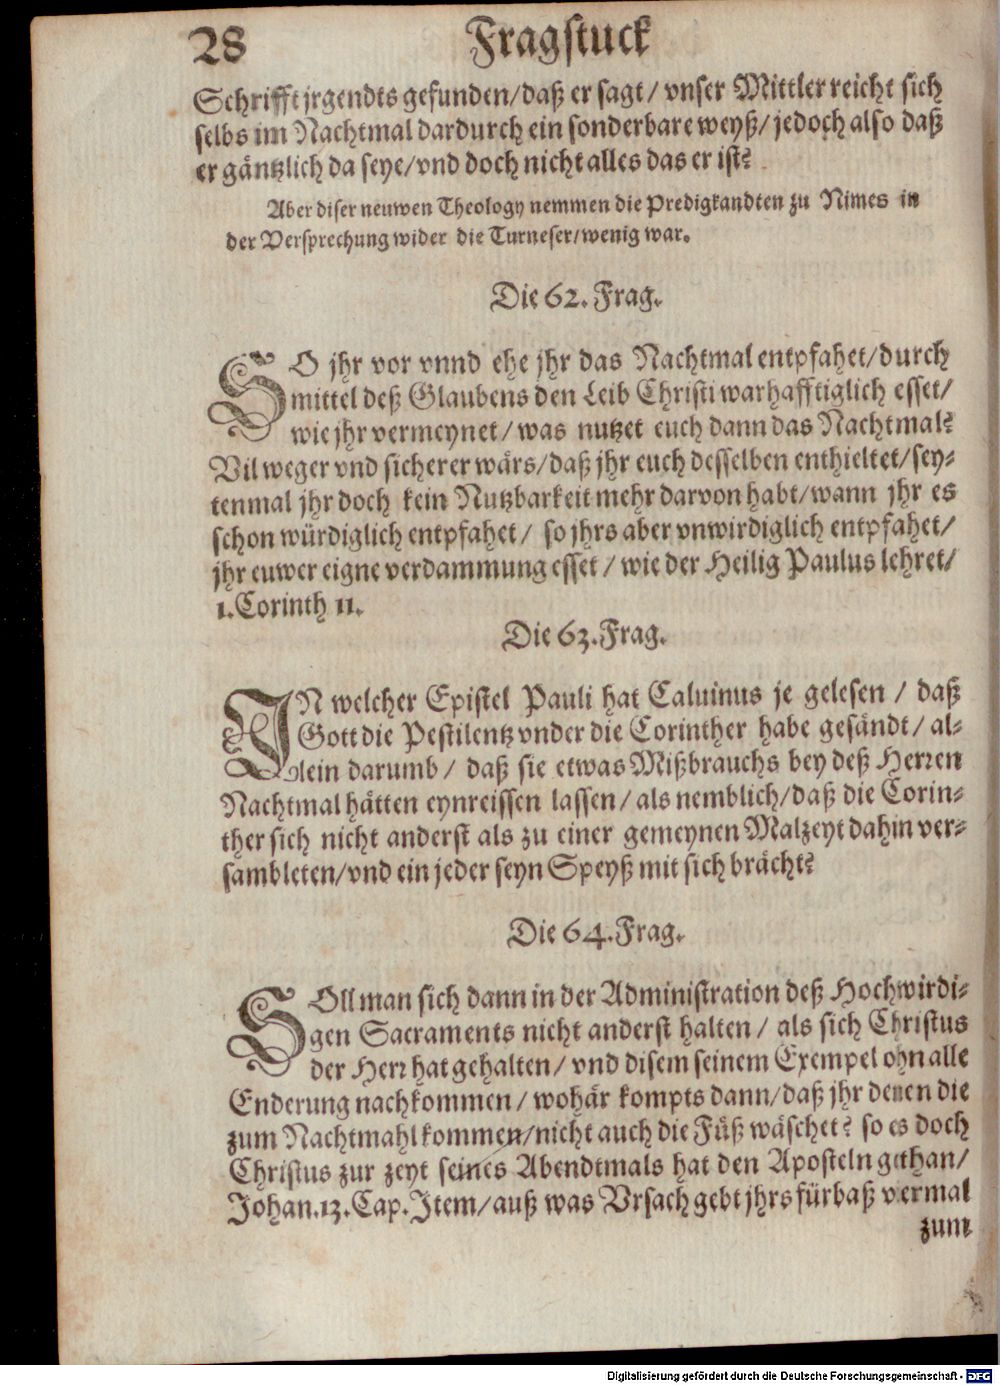 28 Fragstuck
Schrifft jrgendts gefunden/daß er sagt/ vnser Mittler reicht sich
selbs im Nachtmal dardurch ein sonderbare weyß/ jedoch also daß
er gäntzlich da seye/vnd doch nicht alles das er ist?
Aber diser neuwen Theology nemmen die Predigkandten zu Nimes in
der Versprechung wider die Turneser/wenig war.
Die 62. Frag.
SO jhr vor vnnd ehe jhr das Nachtmal entpfahet/durch
mittel deß Glaubens den Leib Christi warhafftiglich esset/
wie jhr vermeynet/ was nutzet euch dann das Nachtmal?
Vil weger vnd sicherer wärs/daß jhr euch desselben enthieltet/sey-
tenmal jhr doch kein Nutzbarkeit mehr darvon habt/wann jhr es
schon würdiglich entpfahet/ so jhrs aber vnwirdiglich entpfahet/
jhr euwer eigne verdammung esset/ wie der Heilig Paulus lehret/
1.Corinth 11.
Die 63.Frag.
IN welcher Epistel Pauli hat Caluinus je gelesen / daß
Gott die Pestilentz vnder die Corinther habe gesändt/ al-
lein darumb/ daß sie etwas Mißbrauchs bey deß Herren
Nachtmal hätten eynreissen lassen/ als nemblich/daß die Corin-
ther sich nicht anderst als zu einer gemeynen Malzeyt dahin ver-
sambleten/vnd ein jeder seyn Speyß mit sich brächt?
Die 64.Frag.
SOll man sich dann in der Administration deß Hochwirdi-
gen Sacraments nicht anderst halten/ als sich Christus
der Herr hat gehalten/ vnd disem seinem Exempel ohn alle
Enderung nachkommen/ wohär kompts dann/daß jhr denen die
zum Nachtmahl kommen/nicht auch die Füß wäschet? so es doch
Christus zur zeyt seines Abendtmals hat den Aposteln gethan/
Johan.13.Cap.Item/auß was Vrsach gebt jhrs fürbaß vermal
zum
Digitalisierung gefördert durch die Deutsche Forschungsgemeinschaft - DFG